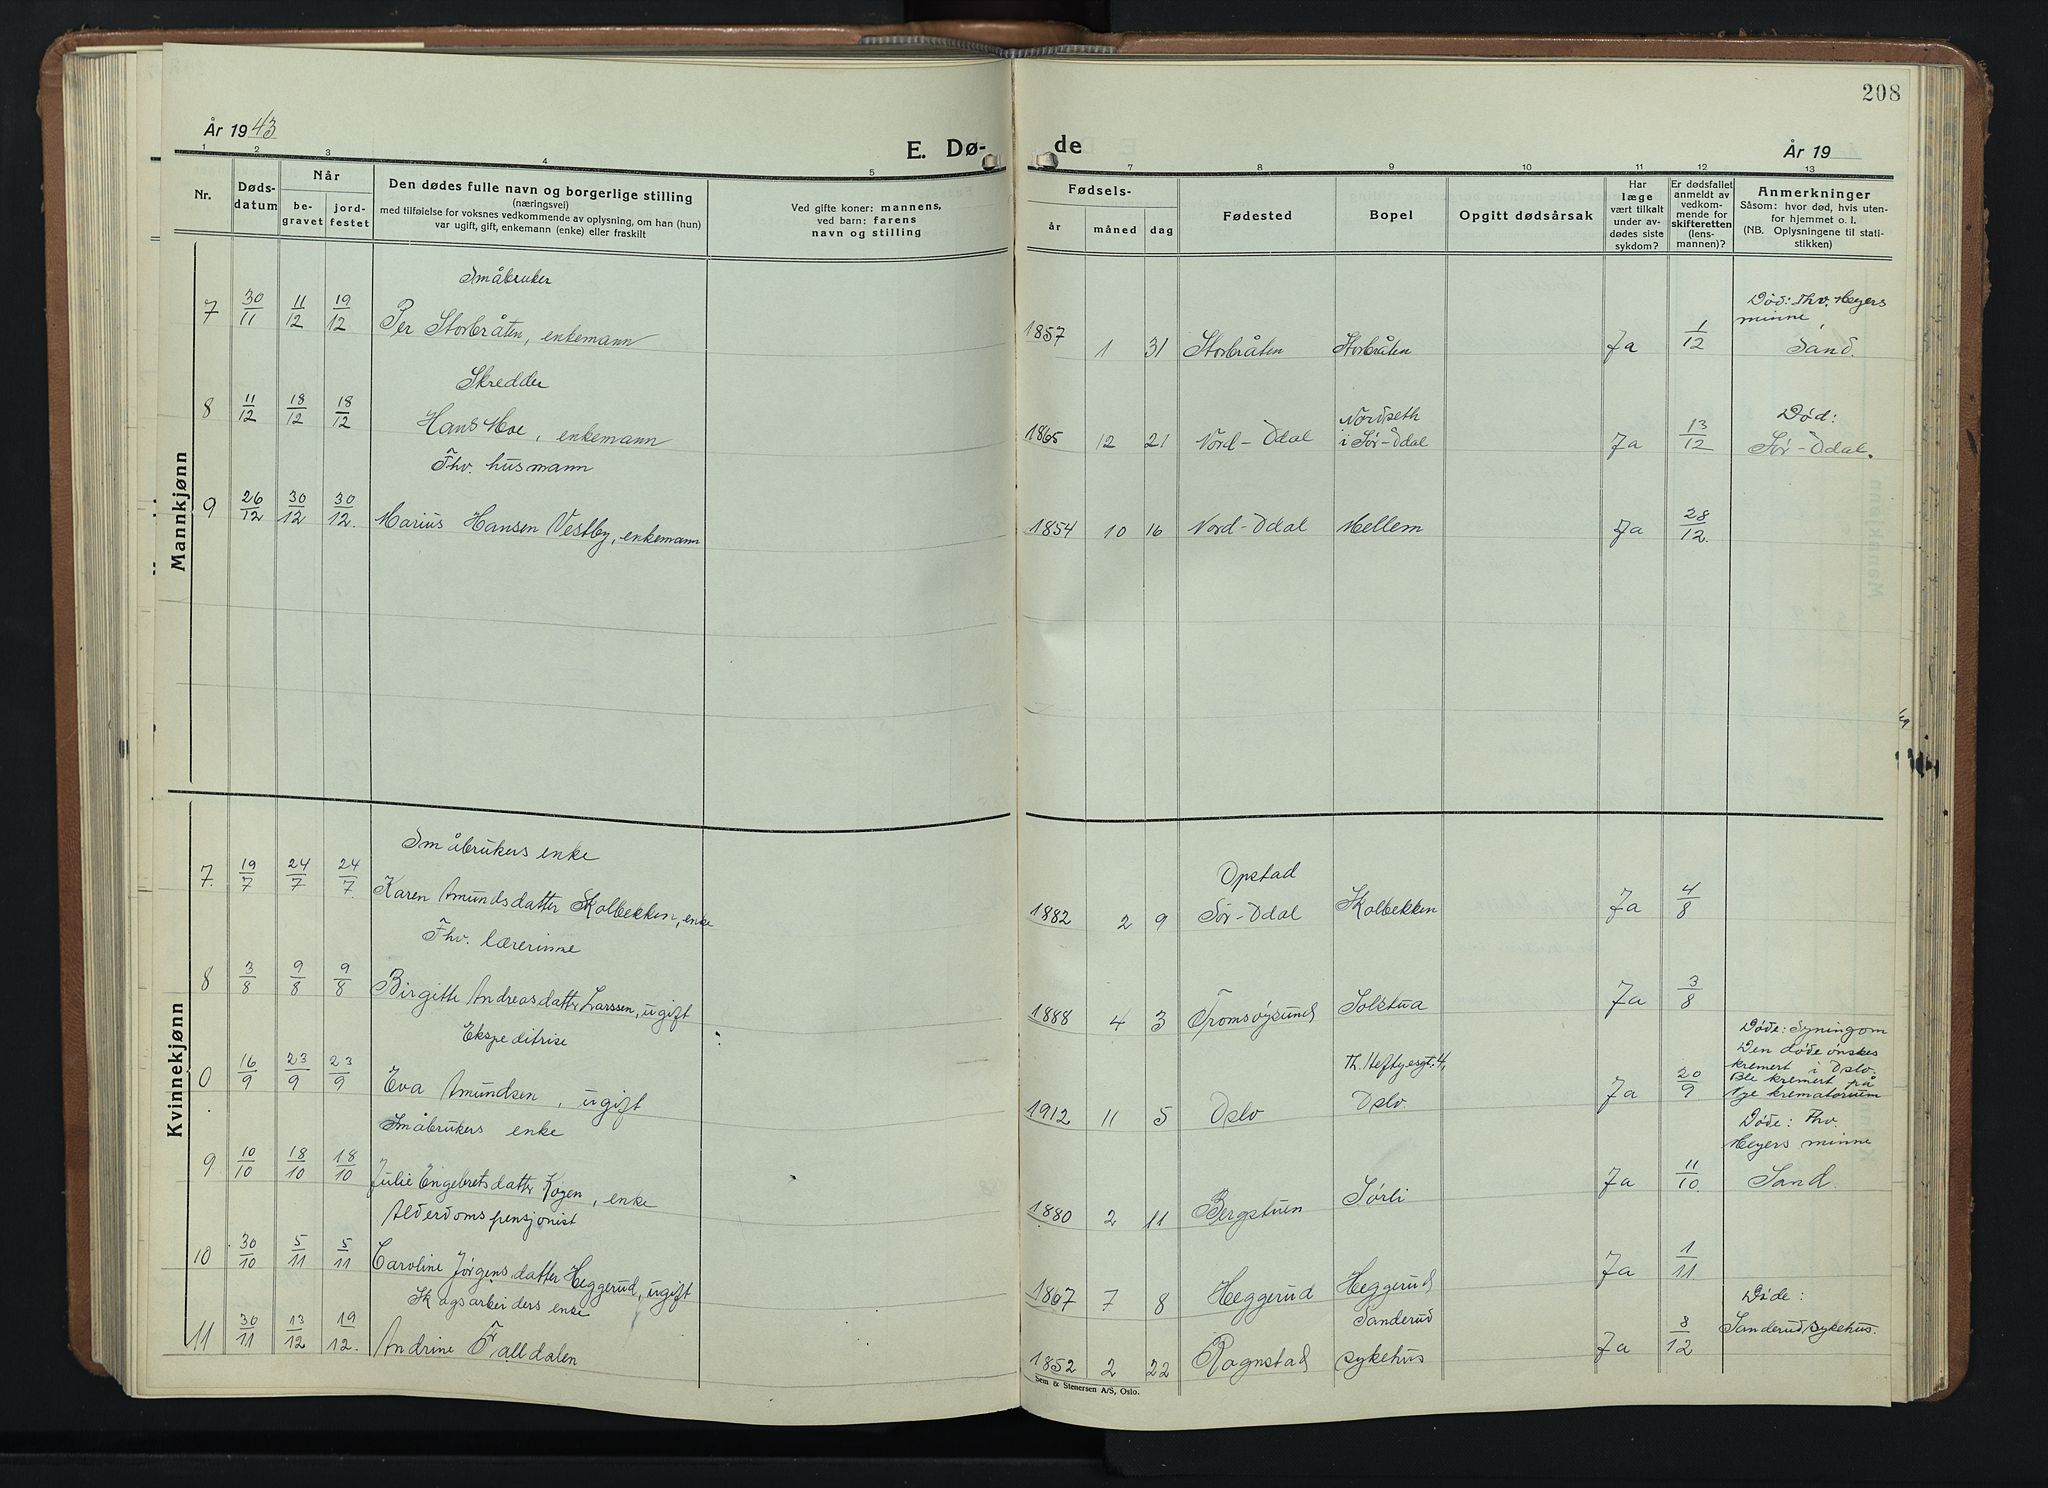 208
År 1943
E. Dø-
de
År 19
1 2 3 4 5 7 8 9 10 11 12 13
Nr.
Døds-
datum
Når
be-
gravet
jord-
festet
Den dødes fulle navn og borgerlige stilling
(næringsvei)
med tilføielse for voksnes vedkommende av oplysning, om han (hun)
var ugift, gift, enkemann (enke) eller fraskilt
Ved gifte koner: mannens,
ved barn: farens
navn og stilling
Fødsels-
år måned dag
Fødested
Bopel
Opgitt dødsårsak
Har
læge
vært tilkalt
under av-
dødes siste
sykdom?
Er dødsfallet
anmeldt av
vedkom-
mende for
skifteretten
(lens-
mannen)?
Anmerkninger
Såsom: hvor død, hvis uten-
for hjemmet o. l.
(NB. Oplysningene til stati-
stikken)
Mannkjønn
Småbruker
7 30/11 11/12 19/12 Per Storbråten, enkemann 1857 1 31 Storbråten Storbråten Ja 1/12
Død: Thv. Meyers
minne,
Sand.
Skredder
8 11/12 18/12 18/12 Hans Moe, enkemann 1865 12 21 Nord-Odal
Nordseth
i Sør-Odal
Ja 13/12
Død:
Sør-Odal.
Fhv. husmann
9 26/12 30/12 30/12. Marius Hansen Vestby, enkemann 1854 10 16 Nord-Odal Mellem Ja 28/12.
Kvinnekjønn
Småbrukers enke
7. 19/7 24/7 24/7. Karen Amundsdatter Skolbekken, enke 1882 2 9
Opstad
Sør-Odal
Skolbekken Ja 4/8
Fhv. lærerinne
8 3/8 9/8 9/8 Birgitte Andreasdatter Larssen, ugift 1888 4 3 Tromsøysund Solstua Ja 3/8
Ekspeditrise
0 16/9 23/9 23/9 Eva Amundsen, ugift 1912 11 5 Oslo
Th. Heftyesgt. 4,
Oslo.
Ja 20/9
Døde: Syningom
Den døde ønskes
kremert i Oslo.
Ble kremert på
Nye krematorium
Småbrukers enke
9 10/10 18/10 18/10 Julie Engebretsdatter Køgen, enke 1880 2 11 Bergstuen Sørli Ja 11/10.
Døde: Thv.
Meyers minne
Sand.
Alderdomspensjonist
10 30/10 5/11 5/11 Caroline Jørgensdatter Heggerud, ugift 1867 7 8 Heggerud Heggerud Ja 1/11
Skogsarbeiders enke
11 30/11 13/12 19/12. Andrine Falldalen 1852 2 22 Rognstad
Sanderud
sykehus
Ja 8/12
Døde:
Sanderud sykehus.
Sem & Stenersen A/S, Oslo.